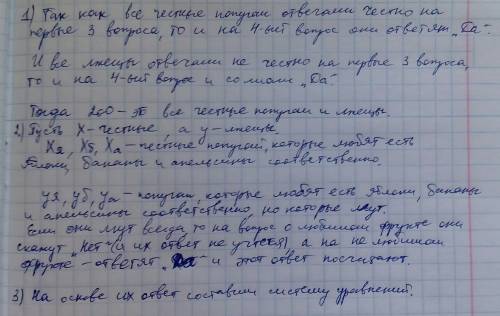 1) Так как все честные попугаи отвечали честно на
первые 3 вопроса, то и на 4-ый вопрос они ответят „Да“.
И все лжецы отвечали не честно на первые 3 вопроса,
то и на 4-ый вопрос и солгали „Да“.
Тогда 200 - это все честные попугаи и лжецы.
2) Пусть X-честные, а y-лжецы.
Xя, Xб, Xа - честные попугаи, которые любят есть
яблоки, бананы и апельсины соответственно.
yя, yб, yа - попугаи, которые любят есть яблоки, бананы
и апельсины соответственно, но которые лгут.
Если они лгут всегда, то на вопрос о любимом фрукте они
скажут „Нет“ (и их ответ не учтётся), а на не любимом
фрукте - ответят „Да“ и этот ответ посчитают.
3) На основе их ответ составим систему уравнений.